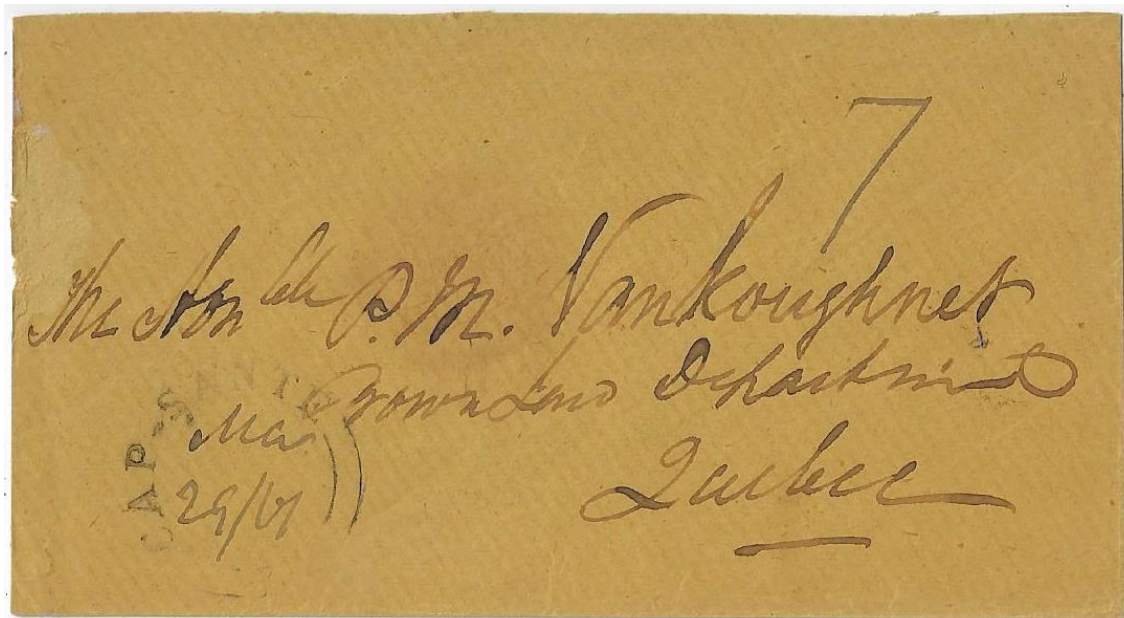 7
The Honble P. M. Vankoughnet
Crown Land Department
Quebec
CAP-SANTÉ
Mar
29/61